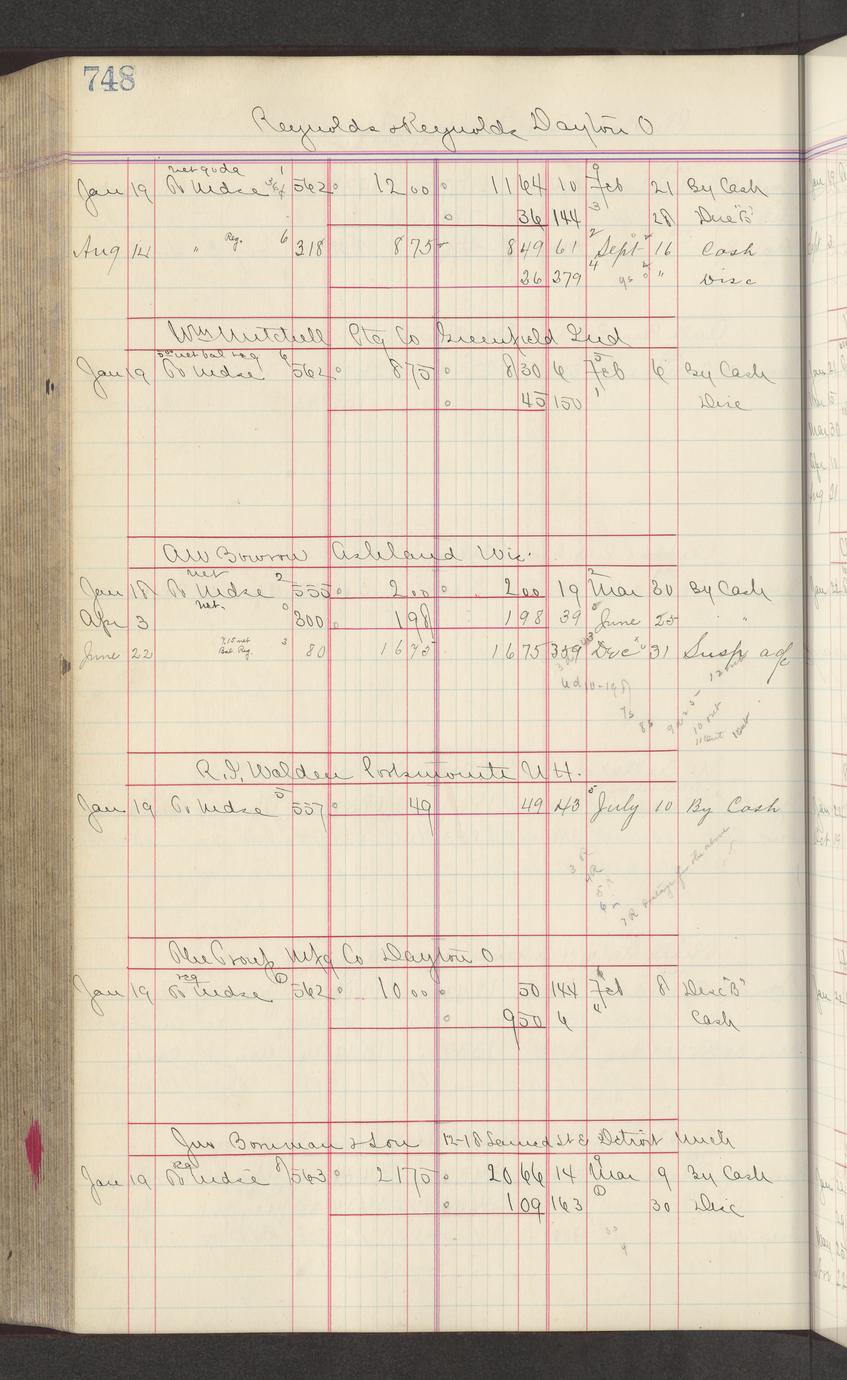 748
Reynolds & Reynolds Dayton O
net 90 da 1
Jan 19 To Mdse 562 12 00 11 64 10 Feb 21 By Cash
36 144 28 Disc "B"
Aug 14 " Reg. 6 318 8 75 8 49 61 Sept 16 Cash
26 279 " Disc
Wm Mitchell Ptg Co Greenfield Ind
net bal reg 6
Jan 19 To Mdse 562 8 75 8 30 6 Feb 6 By Cash
45 150 Disc
AW Bowron Ashland Wis.
net 2
Jan 18 To Mdse 555 2 00 2 00 19 Mar 30 By Cash
Apr 3 net. 0 300 1 98 1 98 39 June 25 "
June 22 7.15 net Bal. Reg. 3 80 16 75 16 75 359 Dec 31 Susp a/c
R.I. Walden Portsmouth N.H.
Jan 19 To Mdse 5 557 49 49 43 July 10 By Cash
7 R postage for the above
The Troup Mfg Co Dayton O
reg
Jan 19 To Mdse 562 10 00 50 144 Feb 8 Disc "B"
9 50 6 " Cash
Jno Bornman & Son 12-18 Larned St E Detroit Mich
reg
Jan 19 To Mdse 8 563 21 75 20 66 14 Mar 9 By Cash
1 09 163 30 Disc